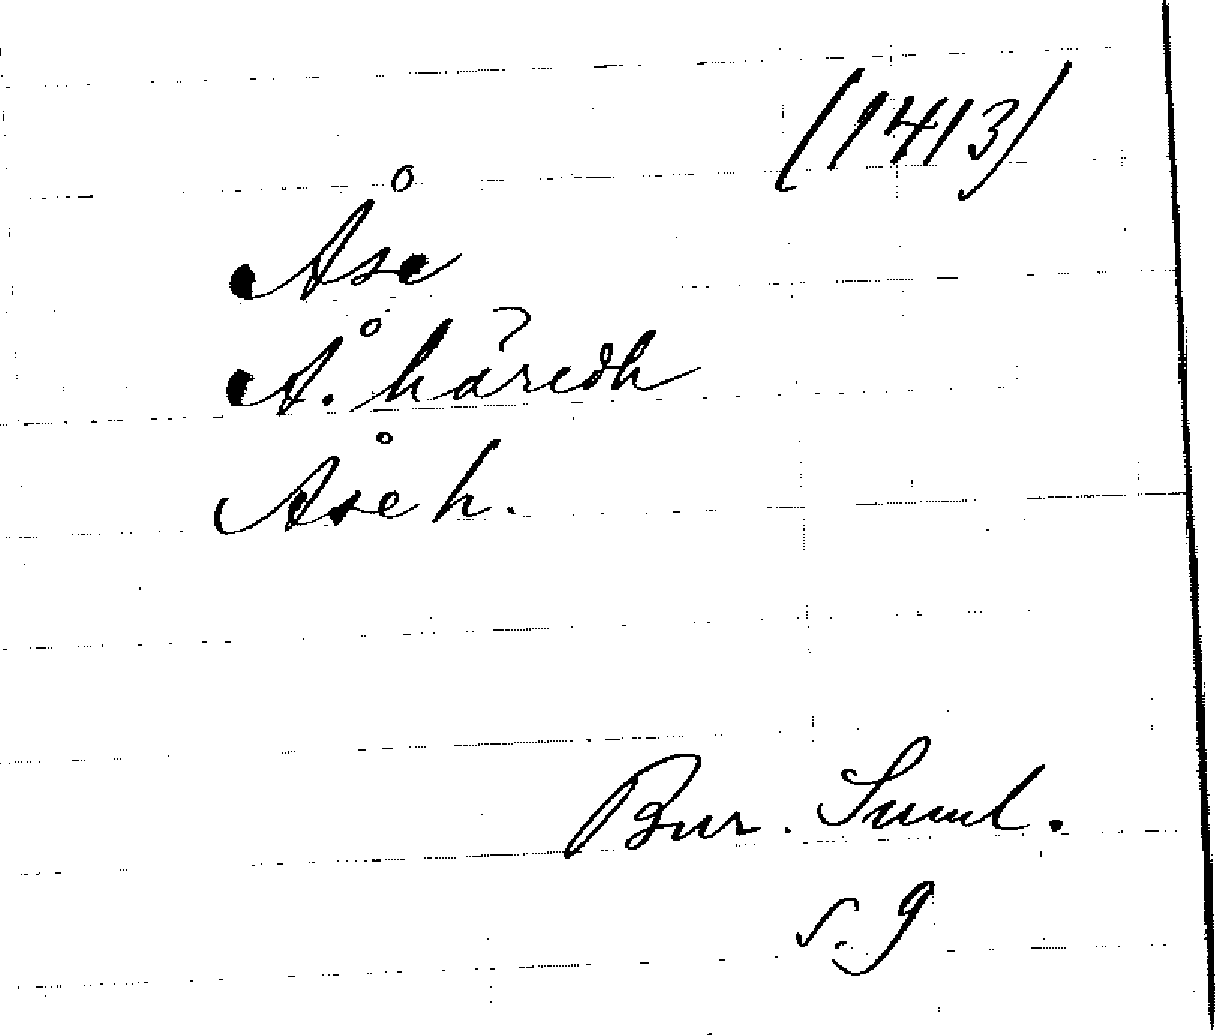 (1413)
Åse
Å. häredh
Åse h.
Bur. Suml.
s. 9